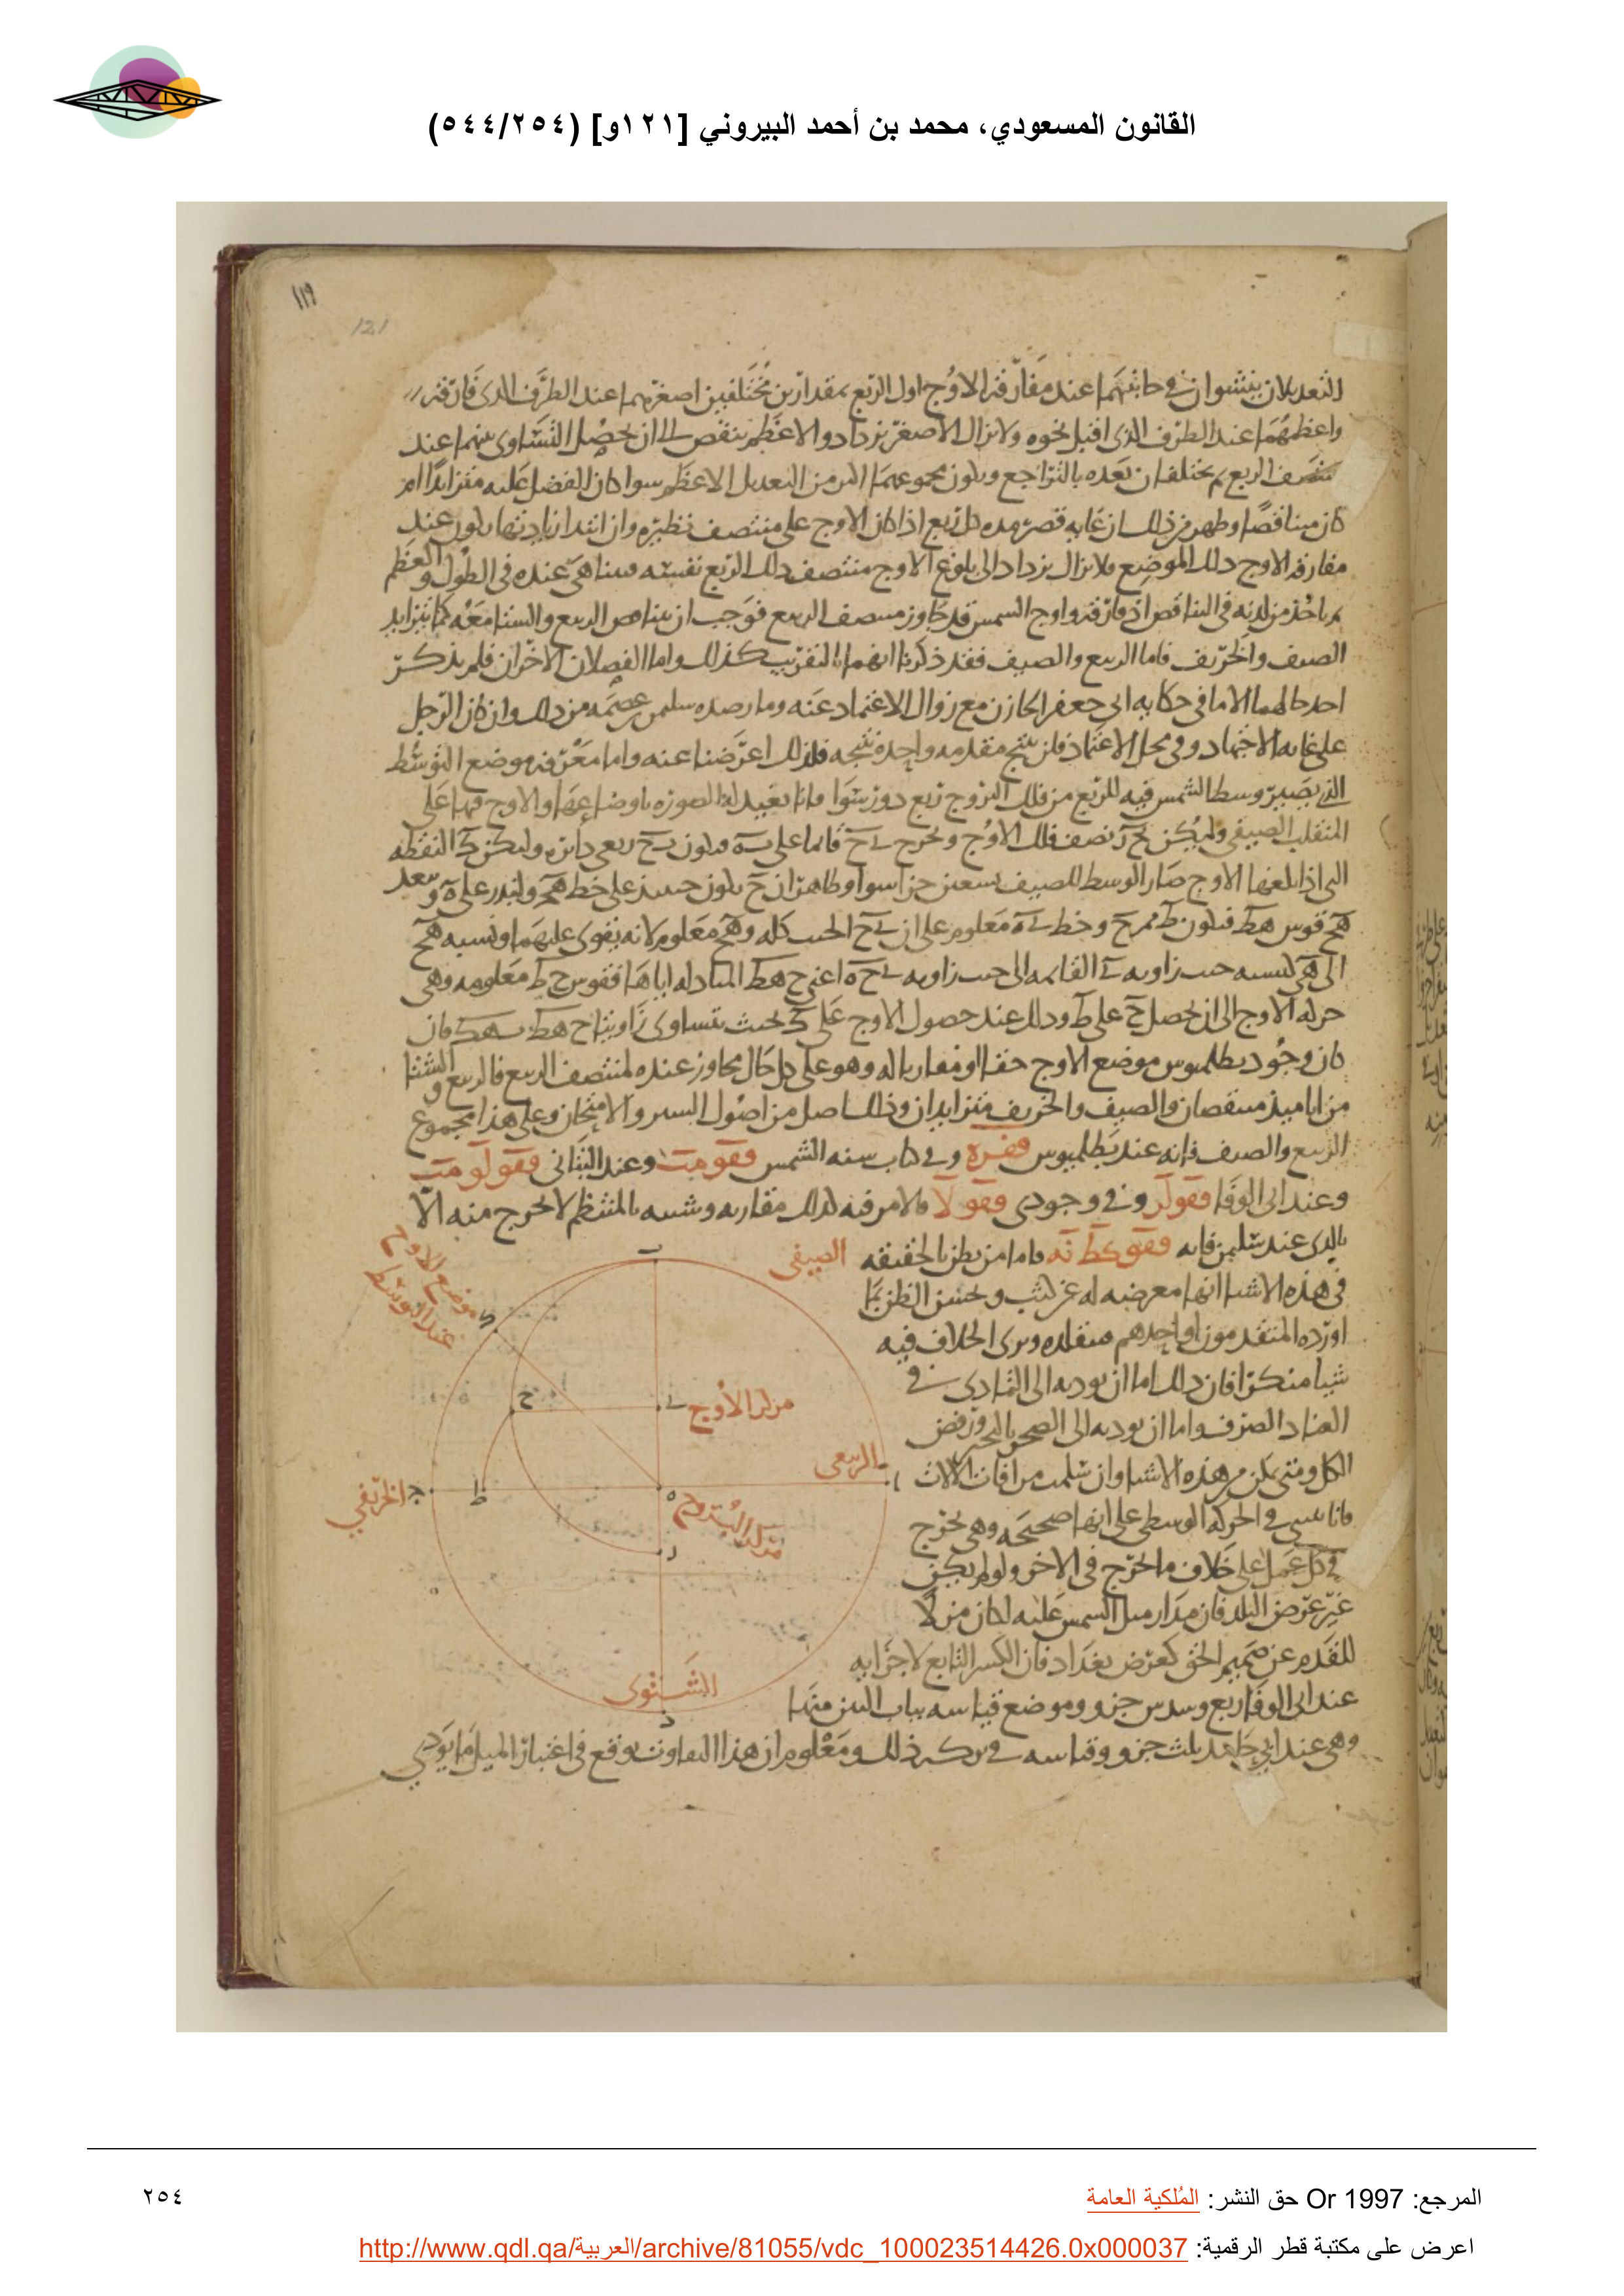 القانون المسعودي، محمد بن أحمد البيروني [١٢١و] (٥٤٤/٢٥٤)
١١٩
121
التعديلان ينتشوان في حاشيتهما عند مفارقة الاوج اول الربع بمقدارين مختلفين اصغرهما عند الطرف الذى فارقه
واعظمهما عند الطرف الذى اقبل نحوه ولا يزال الاصغر يزداد والاعظم ينقص الى ان يحصل التساوى بينهما عند
منتصف الربع ثم يختلفان بعده بالتراجع ويكون مجموعهما اكثر من التعديل الاعظم سوا كان الفضل عليه متزايدا ام
كان متناقصا وظهر من ذلك ان غايه قصر مده كل ربع اذا كان الاوج على منتصف نظيره وان ابتدا زيادتها يكون عند
مفارقة الاوج ذلك الموضع ولا يزال يزداد الى بلوغ الاوج منتصف ذلك الربع نفسه فيتناهى عنده فى الطول والعظم
ثم ياخذ من لدنه فى التناقص اذ فارقه واوج الشمس قد جاوز منتصف الربيع فوجب ان يتناقص الربيع والشتا معه كما يتزايد
الصيف والخريف فاما الربيع والصيف فقد ذكرنا انهما بالتقريب كذلك واما الفصلان الاخران فلم يذكر
احد حالهما الا ما فى حكايه ابى جعفر الخازن مع زوال الاعتماد عنه وما رصده سليمن بن عصمه من ذلك وان كان الرجل
على غايه الاجتهاد وفى محل الاعتماد فلن ينتج مقدمه واحده نتيجه فلذلك اعرضنا عنه واما معرفه موضع التوسط
الذى يصير وسط الشمس فيه للربع من فلك البروج ربع دور سوا فانا نعيد له الصوره باوضاعها والاوج فيها على
المنقلب الصيفى وليكن بح ر نصف فلك الاوج ونخرج ى ح قائما على ب ه فيكون ب ح ربعى دائره وليكن ك النقطه
التى اذا بلغها الاوج صار الوسط للصيف تسعين جزا سوا وظاهر ان ح يكون حينئذ على خط ه ج ولندر على ه وببعد
ه ح قوس ح ط فيكون ط ممر ح وخط ى ه معلوم على ان ى ح الجيب كله و ه ح معلوم لانه يقوى عليهما ونسبه ه ح
الى ه ى كنسبه جيب زاويه ى القائمه الى جيب زاويه ى ح ه اعنى ح ه ط المبادله اياها فقوس ح ط معلومه وهى
حركه الاوج الى ان يحصل ح على ط وذلك عند حصول الاوج على ك بحيث تتساوى زاويتا ح ه ط ب ه ك فان
كان وجود بطلميوس موضع الاوج حقا او مقاربا له وهو على كل حال مجاوز عنده لمنتصف الربيع فالربيع والشتا
من ايامئذ متنقصان والصيف والخريف متزايدان وذلك اصل من اصول السير والامتحان وعلى هذا مجموع
الربيع والصيف فانه عند بطلميوس ففزه وفى كتاب سنه الشمس ففومت وعند البتانى ففولومت
وعند ابى الوفا ففولر وفى وجودى ففولا فالامر فيه لذلك مقاربه وشبيه بالمنتظم لا يخرج منه الا
بالذى عند سليمن فانه ففوكطنه فاما من يظن بالحقيقه
فى هذه الاشيا انها معرضه له عن كثب ويحسن الظن بما
اورده المتقدمون او احدهم فيتقلده ويرى الخلاف فيه
شيا منكرا فان ذلك اما ان يوديه الى التمادى فى
العناد الصرف واما ان يوديه الى الضجر بالتحير ورفض
الكل ومتى يكن من هذه الاشيا وان سلمت من افات الالات
فى الحركه الوسطى على انها صحيحه وهى تخرج
فى كل عمل على خلاف ما تخرج فى الاخر ولو لم يكن
غير عرض البلد فان مدار ميل الشمس عليه لكان مزيلا
للقدم عن صميم الحق كعرض بغداد فان الكسر التابع لاجزايه
عند ابى الوفا ربع وسدس جزو وموضع قياسه بباب التبن منها
وهى عند ابى حامد ثلث جزو وقياسه فى بركه زلزل ومعلوم ان هذا التفاوت يوقع فى اعتبار الميل ما يودى
الصيفى
موضع الاوج
عند التوسط
مركز الاوج
الربيعى
الخريفى
مركز البروج
الشتوى
ب
ك
ح
ى
ا
ج
ط
ه
ر
د
المرجع: Or 1997 حق النشر: المُلكية العامة
٢٥٤
اعرض على مكتبة قطر الرقمية: http://www.qdl.qa/العربية/archive/81055/vdc_100023514426.0x000037